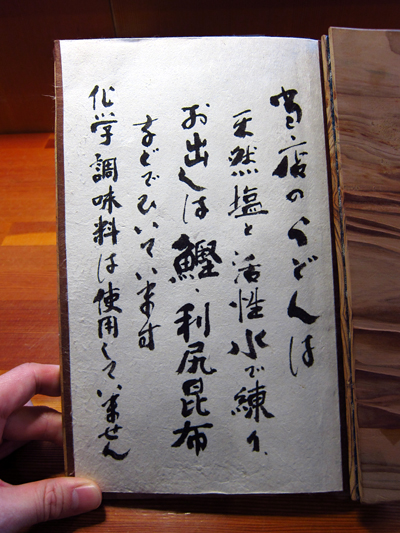 当店のうどんは
天然塩と活性水で練り、
お出しは鰹、利尻昆布
などでひいています
化学調味料は使用していません